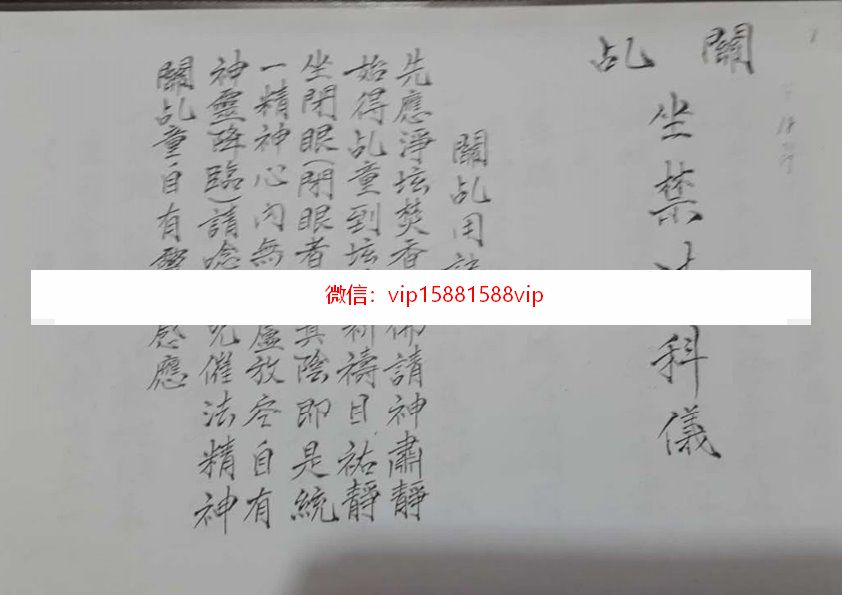 關乩
坐禁科儀
關乩用
先應淨坛焚香佛請神肅靜
始得乩童到坛祈禱目祐靜
坐閉眼(閉眼者真陰即是統
一精神心內無虛放空自有
神靈降臨)請唸咒催法精神
關乩童自有感應
微信：vip15881588vip